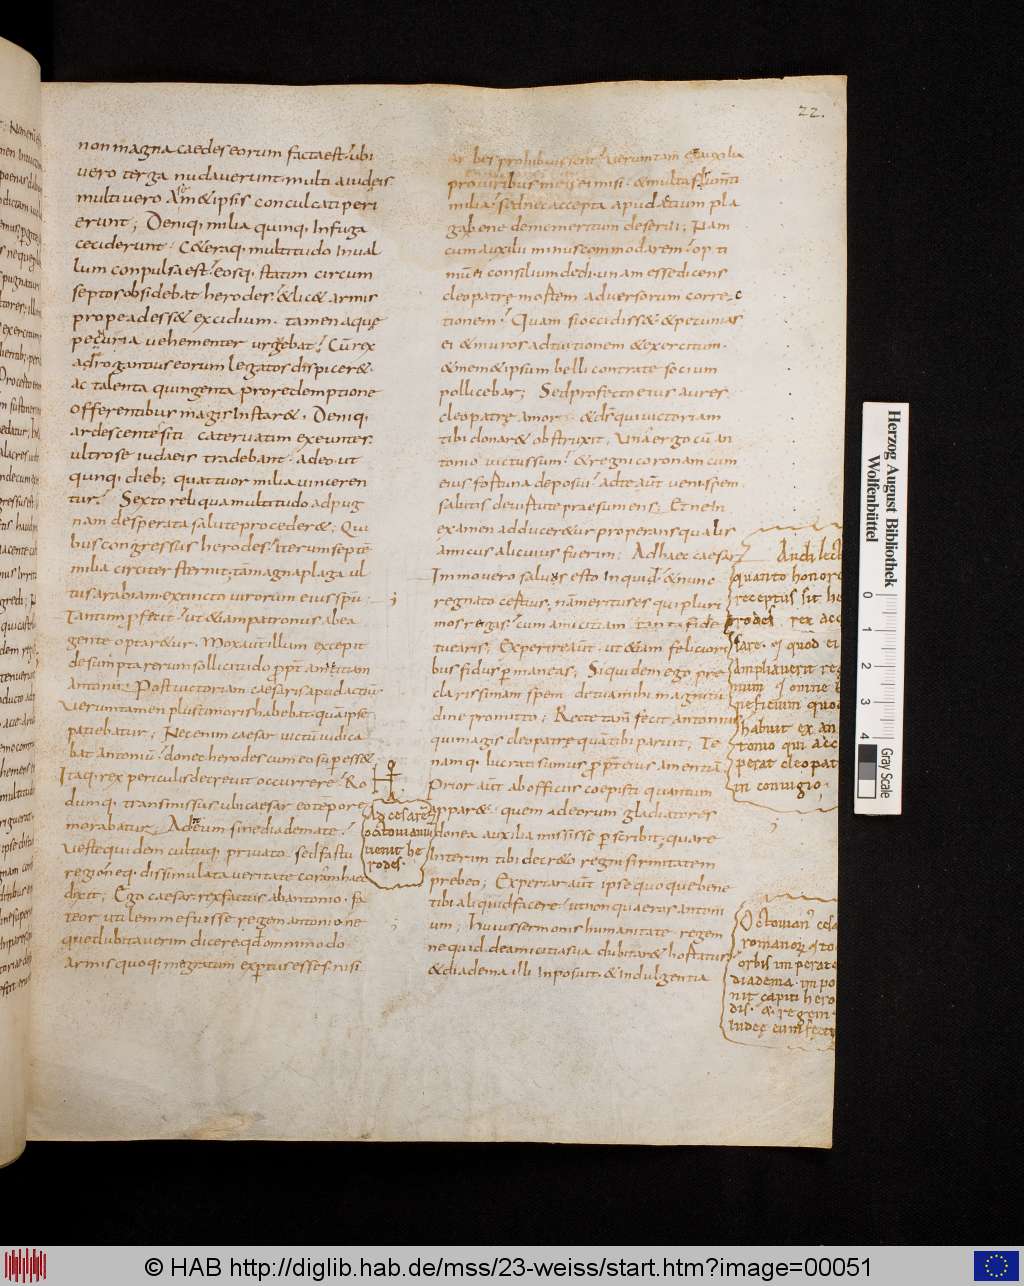 22.
non magna caedes eorum facta est; ubi
uero terga nudauerunt. multi a iudeis
multi uero & ipsis conculcati peri
erunt; Deniq; milia quinq; In fuga
ceciderunt. C&eraq; multitudo In ual
lum conpulsa est; eosq; statim circum
septos obsidebat herodes. & lic& armis
prope adess& excidium. tamen aquę
pecuria uehementer urgebat; Cū rex
adrogantius eorum legatos dispicer&.
ac talenta quingenta pro redemptione
offerentibus magis Instar&. Deniq;
ardescente siti cateruatim exeuntes.
ultro se iudaeis tradebant. adeo ut
quinq; dieb; quattuor milia uinceren
tur; Sexto reliqua multitudo ad pug
nam desperata salute proceder&. Qui
bus congressus herodes iterum septē
milia circiter sternit; tā magna plaga ul
tus arabiam. extincto uirorum eius spū;
Tantum pfecit; ut &iam patronus ab ea
gente optar&ur. Mox aut illum excepit
desumpta rerum sollicitudo ppt amicitiam
antonii; Post uictoriam caesaris apud actiū
Verumtamen plus timoris habebat. quā ipse
patiebatur; Nec enim caesar uictū iudica
bat antoniū. donec herodes cum eo supess&;
Itaq; rex periculis decreuit occurrere; & Ro
dumq; transmissus ubi caesar eo tepore
morabatur, Ad eum sine diademate
ueste quidem cultuq; priuato. sed fastu
region eq; dissimulata ueritate coram haec
dixit; Ego caesar rex factus ab antonio. fa
teor utilem me fuisse regem antonio. ne
que dubitauerim dicere qd omnimodo
armis quoq; me gratum exptus esses. nisi
Ad cesarē
octouianū
uenit he
rodes.
ar bes prohibuissent; uerum tam & auxilia
pro uiribus meis ei misi. & multa frumti
milia; sed nec accepta apud actium pla
ga bene de me meritum deserui; Nam
cum auxilii minus commodarem; opti
mū ei consilium dedi. unam esse dicens
cleopatrę mortem aduersorum correc
tionem; Quam si occidiss& & petunias
ei & muros ad tuitionem & exercitum.
& me & ipsum belli contra te socium
pollicebar; Sed profecto eius aures
cleopatrę amor. & ds qui uictoriam
tibi donar& obstruxit. Una ergo cū an
tonio uictus sum; & regni coronam cum
eius fortuna deposui. ad te aut ueni spem
salutis de uirtute praesumens; Et ne In
examen adducer&ur properans qualis
amicus alicuius fuerim; Ad haec caesar
Immo uero saluus esto Inquid. & nunc
regnato certius; nā meritus es qui pluri
mos regas; cum amicitiam tanta fide
tuearis; Experire aut. ut &iam feliciori
bus fidus pmaneas; Siquidem ego pre
clarissimam spem de tua mihi magnitu
dine promitto; Recte tam fecit antonius
qui magis cleopatrę quā tibi paruit; Te
namq; lucrati sumus ppt eius amentiā
Prior aut ab officiis coepisti quantum
appar&. quem adeorum gladiatores
donea auxilia misisse pscribit; quare
Interim tibi decr&o regni firmitatem
prebeo; Experiar aut ipse quoque bene
tibi aliquid facere. ut non quaeras antoni
um; Huius sermonis humanitate regem
ne quid de amicitia sua dubitar& hortatus.
& diadema illi Inposuit. & indulgentia
Audi lect
quanto honore
receptus sit he
rodes rex a ce
sare. & quod ei
ampliauerit reg
num & omne b
neficium quod
habuit ex an
tonio qui acce
perat cleopat
in coniugio;
Octouian cesa
romanorꝫ & to
orbis imperato
diadema impo
nit capiti hero
dis. & regem.
Iudeę eum fecit
Herzog August Bibliothek
Wolfenbüttel
0 1 2 3 4
Gray Scale
© HAB http://diglib.hab.de/mss/23-weiss/start.htm?image=00051